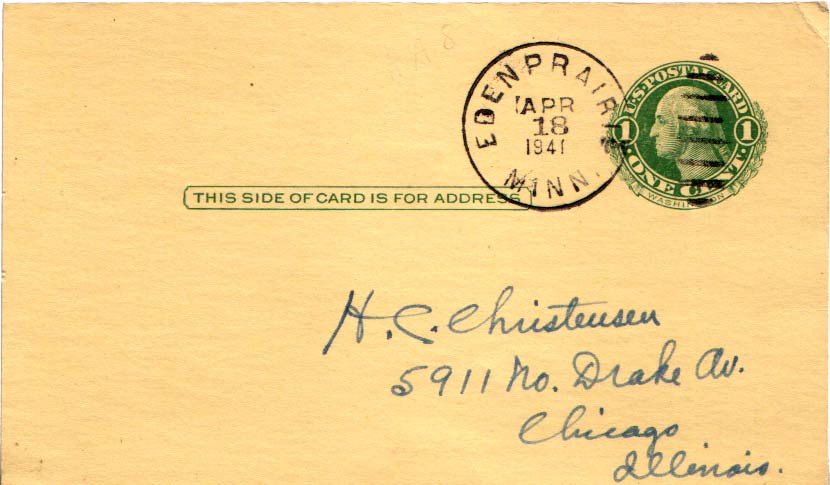 EDEN PRAIRIE
APR
18
1941
MINN.
U.S. POSTAL CARD
1 1
ONE CENT
WASHINGTON
THIS SIDE OF CARD IS FOR ADDRESS
H. C. Christensen
5911 No. Drake Av.
Chicago
Illinois.